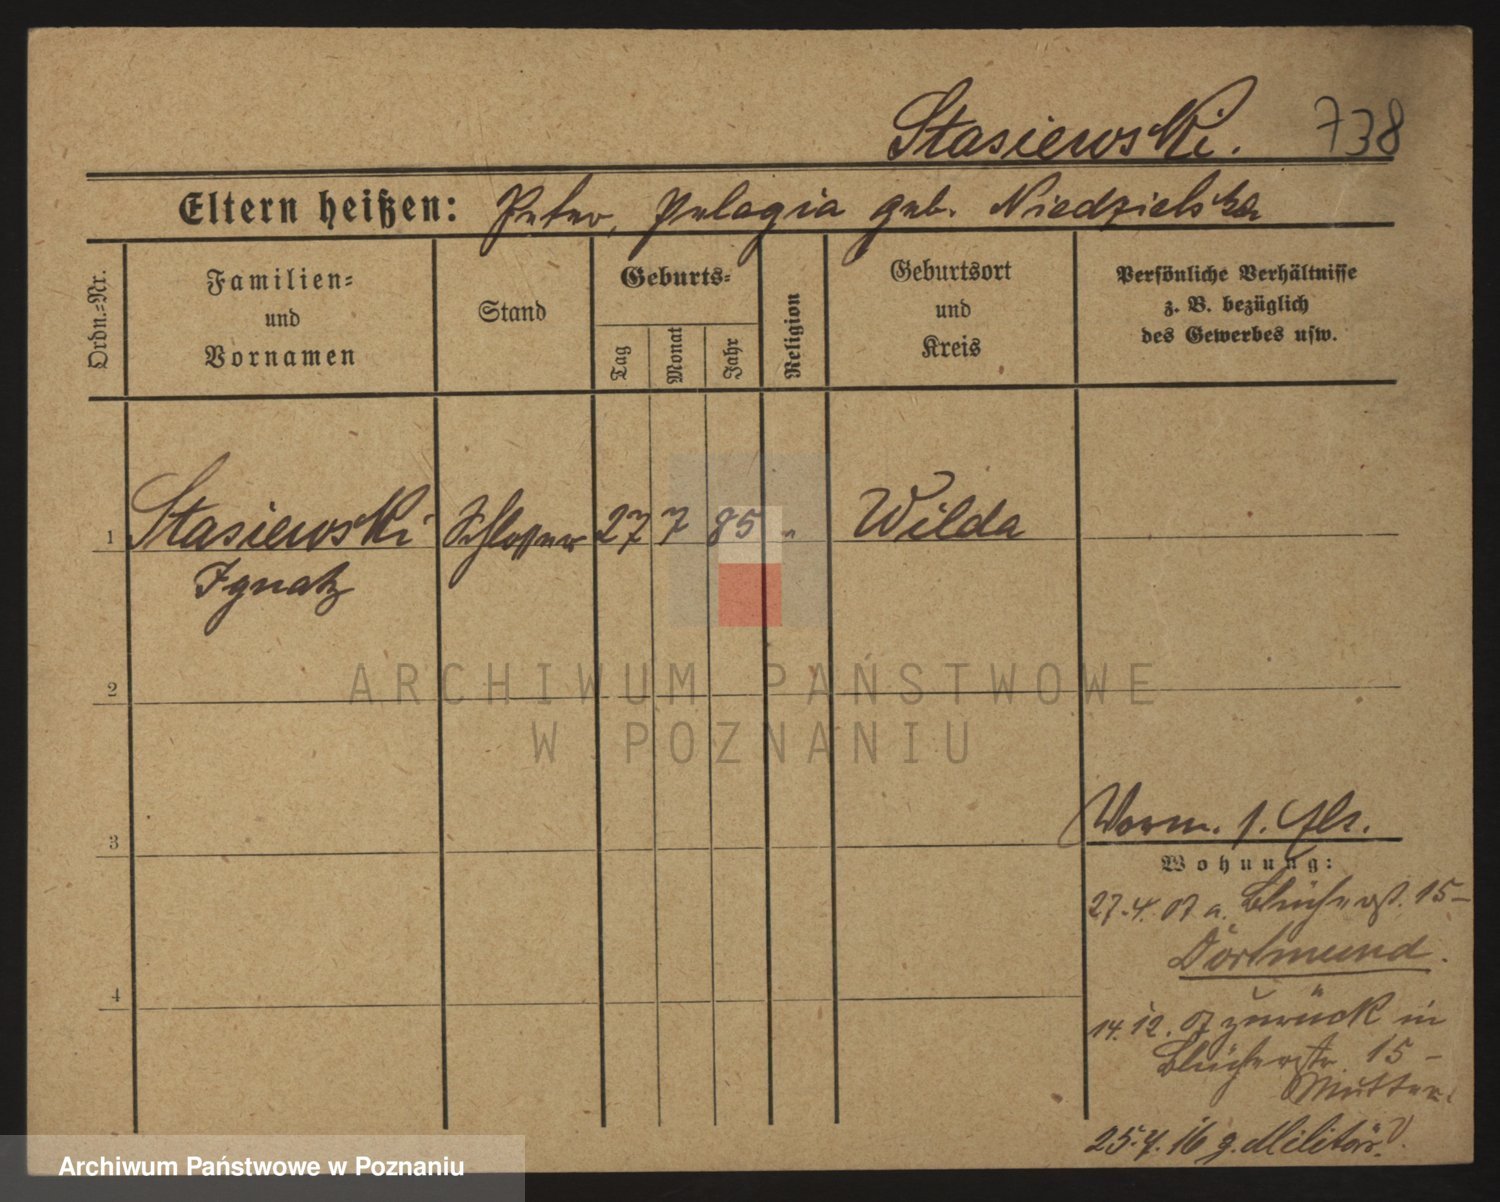 Stasiewski. 738
Eltern heißen: Peter, Pelagia geb. Niedzielska
Ordn.-Nr.
Familien-
und
Vornamen
Stand
Geburts-
Tag
Monat
Jahr
Religion
Geburtsort
und
Kreis
Persönliche Verhältnisse
z. B. bezüglich
des Gewerbes usw.
1 Stasiewski Schlosser 27 7 85 " Wilda
Ignatz
2
3
4
Vorm.
Wohnung:
27.4.07 a. Blücherst. 15 -
Dortmund.
14.12.07 zurück in
Blücherstr. 15 -
Mutter.
25.4.16 z. Militär.
ARCHIWUM PAŃSTWOWE
W POZNANIU
Archiwum Państwowe w Poznaniu